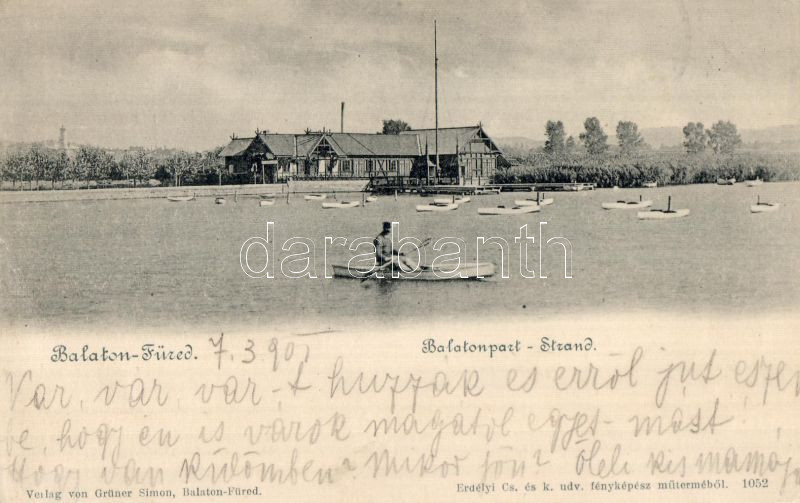 darabanth
Balaton-Füred. 7.3.901
Balatonpart - Strand.
Var, var, var,-t huzzák es erről jut eszem
be, hogy én is várok magától egyet-mást!
Hogy van különben? Mikor jön? Öleli kis mamája
Verlag von Grüner Simon, Balaton-Füred.
Erdélyi Cs. és k. udv. fényképész műterméből. 1052